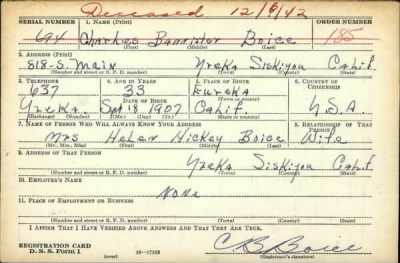 Deceased 12/6/42
SERIAL NUMBER 1. NAME (Print) ORDER NUMBER
694 Charles Bannister Boice 185
(First) (Middle) (Last)
2. ADDRESS (Print)
818-S. Main Yreka Siskiyou Calif.
(Number and street or R. F. D. number) (Town) (County) (State)
3. TELEPHONE 4. AGE IN YEARS 5. PLACE OF BIRTH 6. COUNTRY OF CITIZENSHIP
637 33 Eureka
DATE OF BIRTH (Town or county)
Yreka. Sept 18 1907 Calif. U.S.A.
(Exchange) (Number) (Mo.) (Day) (Yr.) (State or country)
7. NAME OF PERSON WHO WILL ALWAYS KNOW YOUR ADDRESS 8. RELATIONSHIP OF THAT PERSON
Mrs Helen Hickey Boice Wife
(Mr., Mrs., Miss) (First) (Middle) (Last)
9. ADDRESS OF THAT PERSON
Yreka Siskiyou Calif
(Number and street or R. F. D. number) (Town) (County) (State)
10. EMPLOYER'S NAME
None
11. PLACE OF EMPLOYMENT OR BUSINESS
(Number and street or R. F. D. number) (Town) (County) (State)
I AFFIRM THAT I HAVE VERIFIED ABOVE ANSWERS AND THAT THEY ARE TRUE.
REGISTRATION CARD
D. S. S. Form 1 (over) C B Boice
(Registrant's signature)